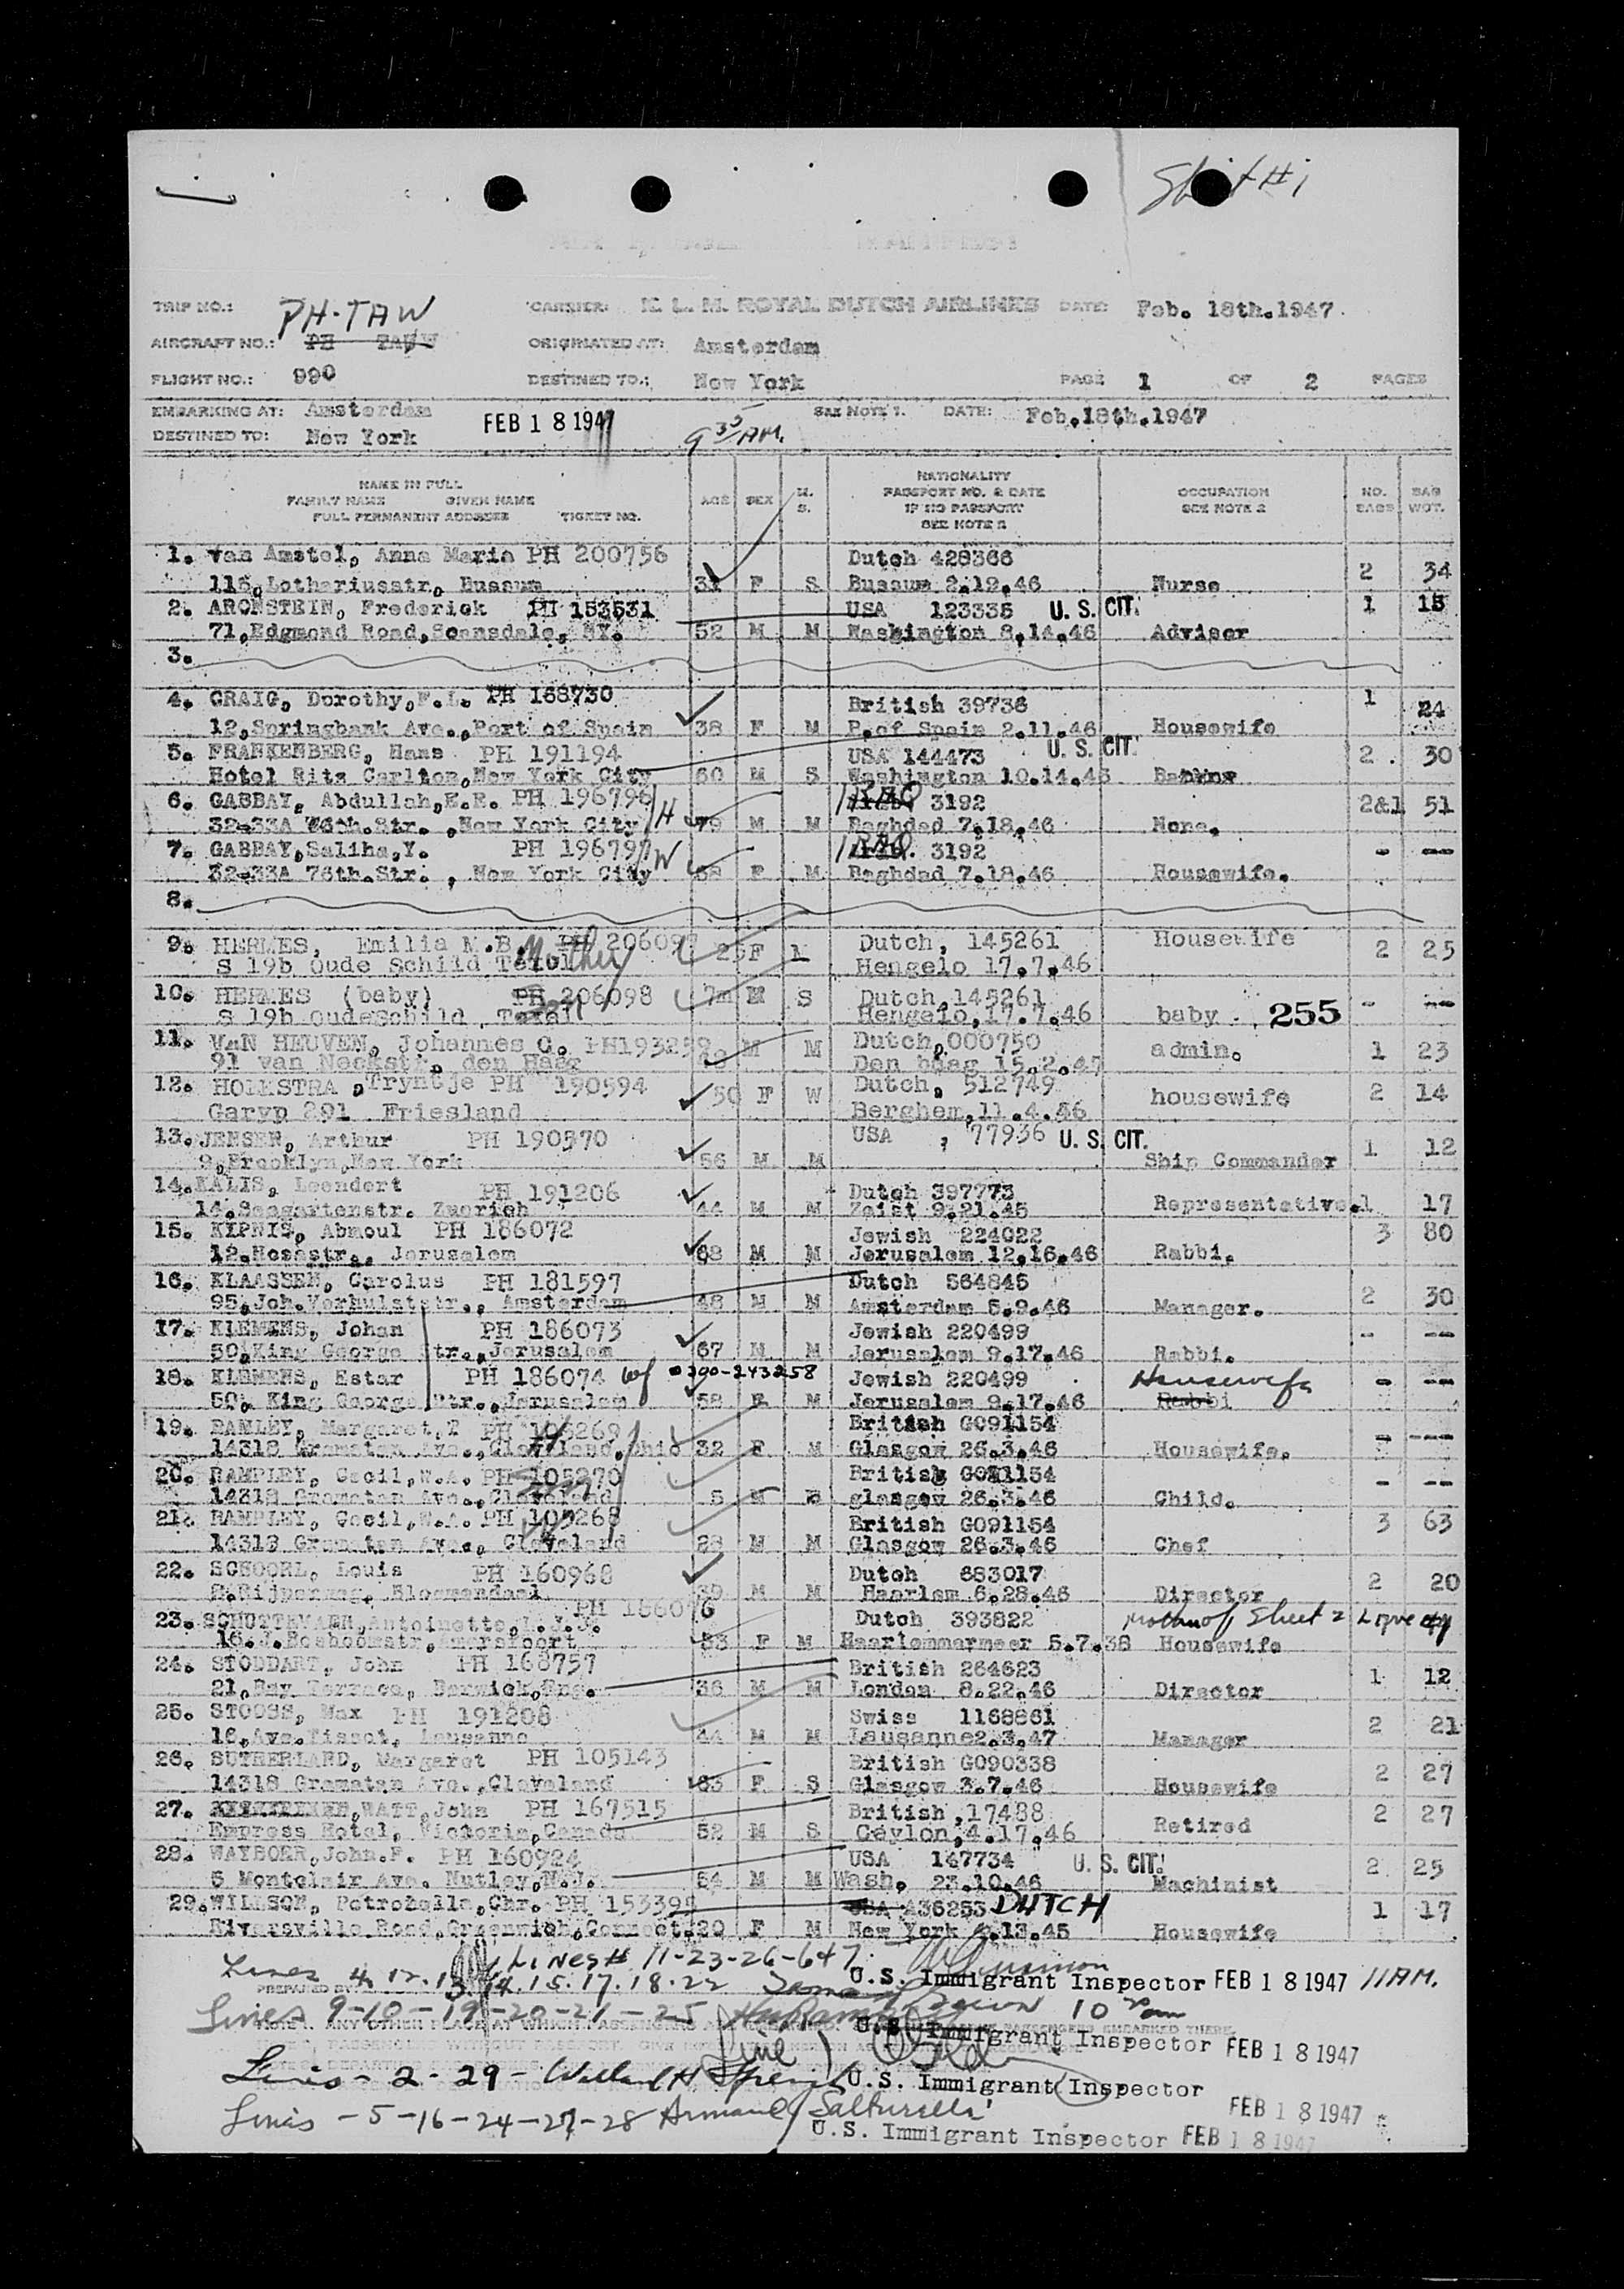 Sheet #1
TRIP NO.: PH-TAW CARRIER: K. L. M. ROYAL DUTCH AIRLINES DATE: Feb. 18th.1947.
AIRCRAFT NO.: PH ORIGINATED AT: Amsterdam
FLIGHT NO.: 990 DESTINED TO.: New York PAGE 1 OF 2 PAGES
EMBARKING AT: Amsterdam FEB 18 1947 9 35 AM. SEE NOTE 1. DATE: Feb.18th.1947
DESTINED TO: New York
NAME IN FULL
FAMILY NAME GIVEN NAME
FULL PERMANENT ADDRESS TICKET NO. AGE SEX M. S. NATIONALITY PASSPORT NO. & DATE IF NO PASSPORT SEE NOTE 2 OCCUPATION SEE NOTE 2 NO. BAGS BAG WGT.
1. van Amstel, Anna Maria PH 200756 Dutch 428366 2 34
115,Lothariusstr, Bussum F S Bussum 2.12.46 Nurse
2. ARONSTEIN, Frederick PH 153531 USA 123335 U. S. CIT. 1 15
71,Edgmond Road,Scarsdale, NY. 52 M M Washington 8.14.46 Adviser
3.
4. CRAIG, Dorothy,F.L. PH 168730 British 39736 1 24
12,Springbank Ave.,Port of Spain 38 F M P.of Spain 2.11.46 Housewife
5. FRANKENBERG, Hans PH 191194 USA 144473 U. S. CIT. 2 . 30
Hotel Ritz Carlton,New York City 60 M S Washington 10.14.46
6. GABBAY, Abdullah,E.R. PH 196796 H IRAQ 3192 2&1 51
32-33A 76th.Str. ,New York City M M Baghdad 7.18.46 None.
7. GABBAY,Saliha,Y. PH 196797 W IRAQ 3192 - --
32-33A 76th.Str. , New York City F M Baghdad 7.18.46 Housewife.
8.
9. HERMES, Emilia M.B. PH 206097 Mother 25 F M Dutch, 145261 Housewife 2 25
S 19b Oude Schild Texel Hengelo 17.7.46
10. HERMES (baby) PH 206098 7m M S Dutch,145261 - --
S 19b OudeSchild, Texel Hengelo,17.7.46 baby 255
11. VAN HEUVEN, Johannes G. PH193259 M M Dutch,000750 admin. 1 23
91 van Neckstr, den Haag Den haag 15.2.47
12. HOEKSTRA ,Tryntje PH 190594 50 F W Dutch, 512749 housewife 2 14
Garyp 291 Friesland Berghem,11.4.46
13. JENSEN, Arthur PH 190570 USA , 77936 U. S. CIT. 1 12
9,Brooklyn,New York 56 M M Ship Commander
14. KALIS, Leendert PH 191206 Dutch 397773
14.Seegartenstr. Zuerich 44 M M Zeist 9.21.45 Representative. 1 17
15. KIPNIS, Abmoul PH 186072 Jewish 224022 3 80
12.Hessstr., Jerusalem 68 M M Jerusalem 12.16.46 Rabbi.
16. KLAASSEN, Carolus PH 181597 Dutch 564845
95,Joh.Verhulststr., Amsterdam 48 M M Amsterdam 5.9.46 Manager. 2 30
17. KLEMENS, Johan PH 186073 Jewish 220499 - --
50,King George Str.,Jerusalem 67 M M Jerusalem 9.17.46 Rabbi.
18. KLEMENS, Estar PH 186074 wf 0300-243258 Jewish 220499 Housewife - --
50, King George Str.,Jerusalem 58 F M Jerusalem 9.17.46 Rabbi
19. RAMLEY, Margaret,T PH 105269 British G091154 - ---
14318 Gramatan Ave.,Cleveland,Ohio 32 F M Glasgow 26.3.46 Housewife.
20. RAMPLEY, Cecil,W.A. PH 105270 British G091154 - --
14318 Gramatan Ave.,Cleveland 5 M S glasgow 26.3.46 Child.
21. RAMPLEY, Cecil,W.A. PH 105268 British G091154 3 63
14318 Gramatan Ave., Cleveland M M Glasgow 26.3.46 Chef
22. SCHOORL, Louis PH 160968 Dutch 683017 2 20
Bloemendaal 39 M M Haarlem 6.28.46 Director
23. Antoinette,L.J.J. PH 186076 Dutch 393822 Mother of Sheet 2
16.J.Bosboomstr,Amersfoort 53 F M Haarlemmermeer 5.7.38 Housewife
24. STODDART, John PH 168757 British 264623 1 12
21,Bay Terrace, Berwick,Eng. 36 M M London 8.22.46 Director
25. STOOSS, Max PH 191208 Swiss 1168861 2 21
16,Ave.Tissot, Lausanne 44 M M Lausanne2.3.47 Manager
26. SUTHERLAND, Margaret PH 105143 British G090338 2 27
14318 Gramatan Ave.,Cleveland 63 F S Glasgow 3.7.46 Housewife
27. WATT,John PH 167515 British ,17488 2 27
Empress Hotel, Victoria,Canada 52 M S Ceylon,4.17.46 Retired
28. WAYBOER,John.F. PH 160924 USA 147734 U. S. CIT. 2 25
5 Montclair Ave. Nutley,N.J. 54 M M Wash. 23.10.46 Machinist
29. WILLSON, Petronella,Chr. PH 153395 USA A36253 DUTCH 1 17
Riversville Road,Greenwich,Connect. 20 F M New York 2.13.45 Housewife
Lines # 11-23-26-6+7
Lines 4.12.13.14.15.17.18.22 U.S. Immigrant Inspector FEB 18 1947 11 AM.
PREPARED BY
Lines 9-10-19-20-21-25
U.S. Immigrant Inspector FEB 18 1947
Line 1
Lines - 2 - 29 - U.S. Immigrant Inspector FEB 18 1947
Lines - 5 - 16 - 24 - 27 - 28 Armand
U.S. Immigrant Inspector FEB 18 1947